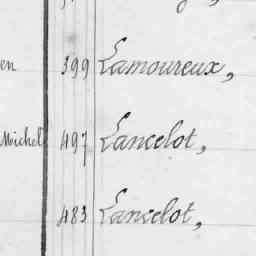 en 399 Lamoureux,
Michel 497 Lancelot,
483 Lancelot,